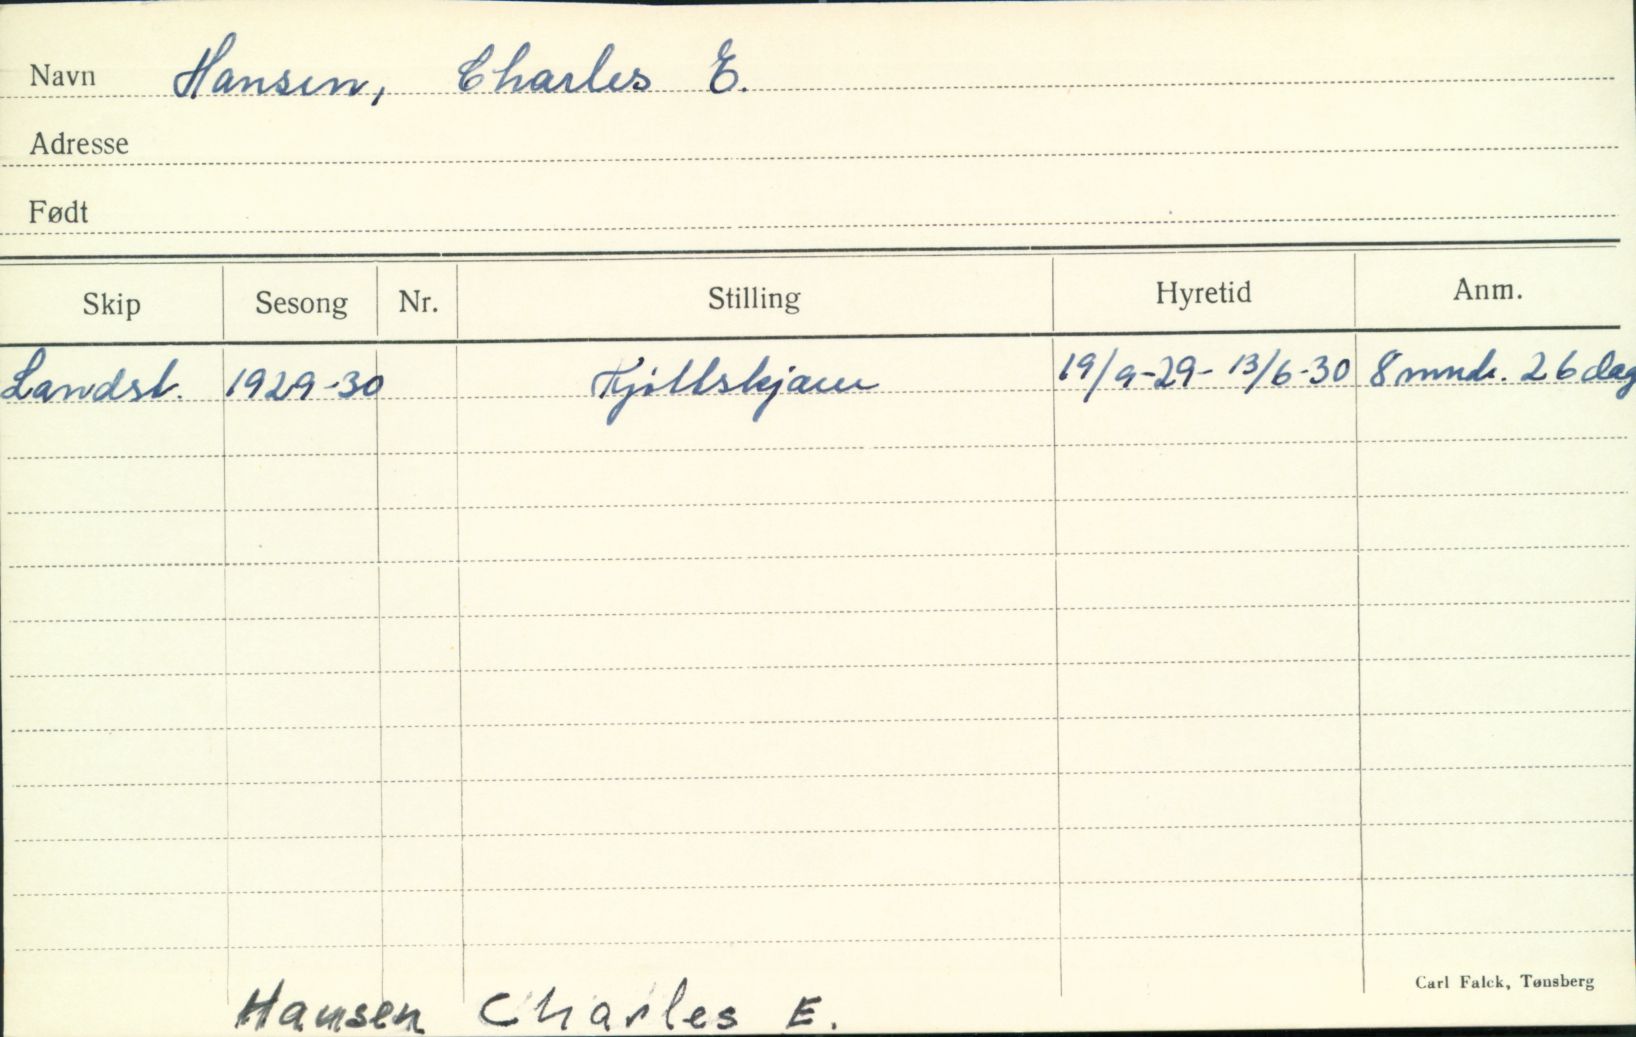 Navn Hansen, Charles E.
Adresse
Født
Skip Sesong Nr. Stilling Hyretid Anm.
Landst. 1929-30 Kjøttskjærer 19/9-29- 13/6-30 8 mndr. 26 dag
Carl Falck, Tønsberg
Hansen Charles E.